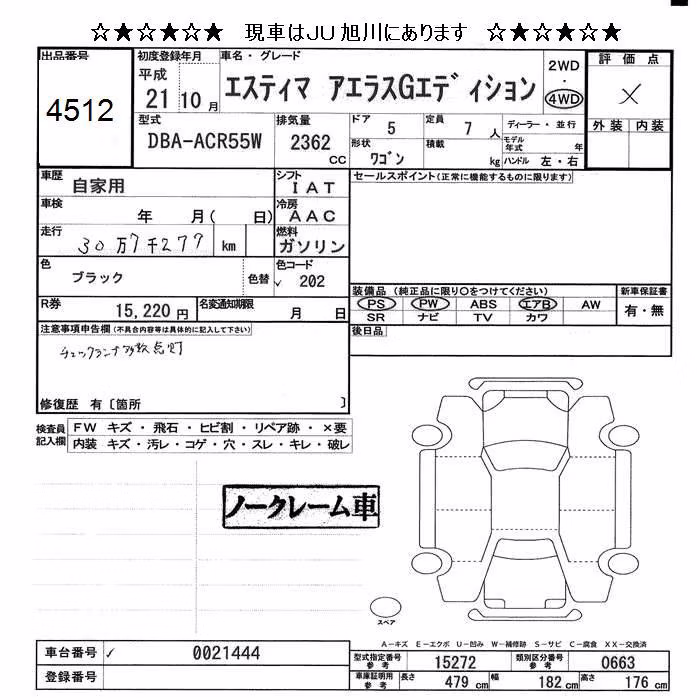 ☆★☆★☆★ 現車はJU旭川にあります ☆★☆★☆★
出品番号
4512
初度登録年月
平成
21 10 月
車名・グレード
エスティマ アエラスGエディション
2WD
・
4WD
評価点
×
外装 内装
型式
DBA-ACR55W
排気量
2362
CC
ドア 5
定員 7 人
形状 ワゴン
積載 kg
ディーラー・並行
モデル年式 年
ハンドル 左・右
車歴
自家用
シフト
IAT
車検
年 月( 日)
冷房
AAC
走行
30万7千277 km
燃料
ガソリン
色
ブラック
色替
色コード
✓ 202
R券
15,220 円
名変通知期限
月 日
セールスポイント(正常に機能するものに限ります)
装備品 (純正品に限り○をつけてください)
PS PW ABS エアB AW
SR ナビ TV カワ
新車保証書
有・無
後日品
注意事項申告欄(不具合内容等は具体的に記入して下さい)
チェックランプ多数点灯
修復歴 有〔箇所 〕
検査員記入欄
FW キズ・飛石・ヒビ割・リペア跡・×要
内装 キズ・汚レ・コゲ・穴・スレ・キレ・破レ
ノークレーム車
スペア
A-キズ E-エクボ U-凹み W-補修跡 S-サビ C-腐食 XX-交換済
車台番号 ✓ 0021444
登録番号
型式指定番号 参考 15272
類別区分番号 参考 0663
車庫証明用 参考 長さ 479 cm 幅 182 cm 高さ 176 cm